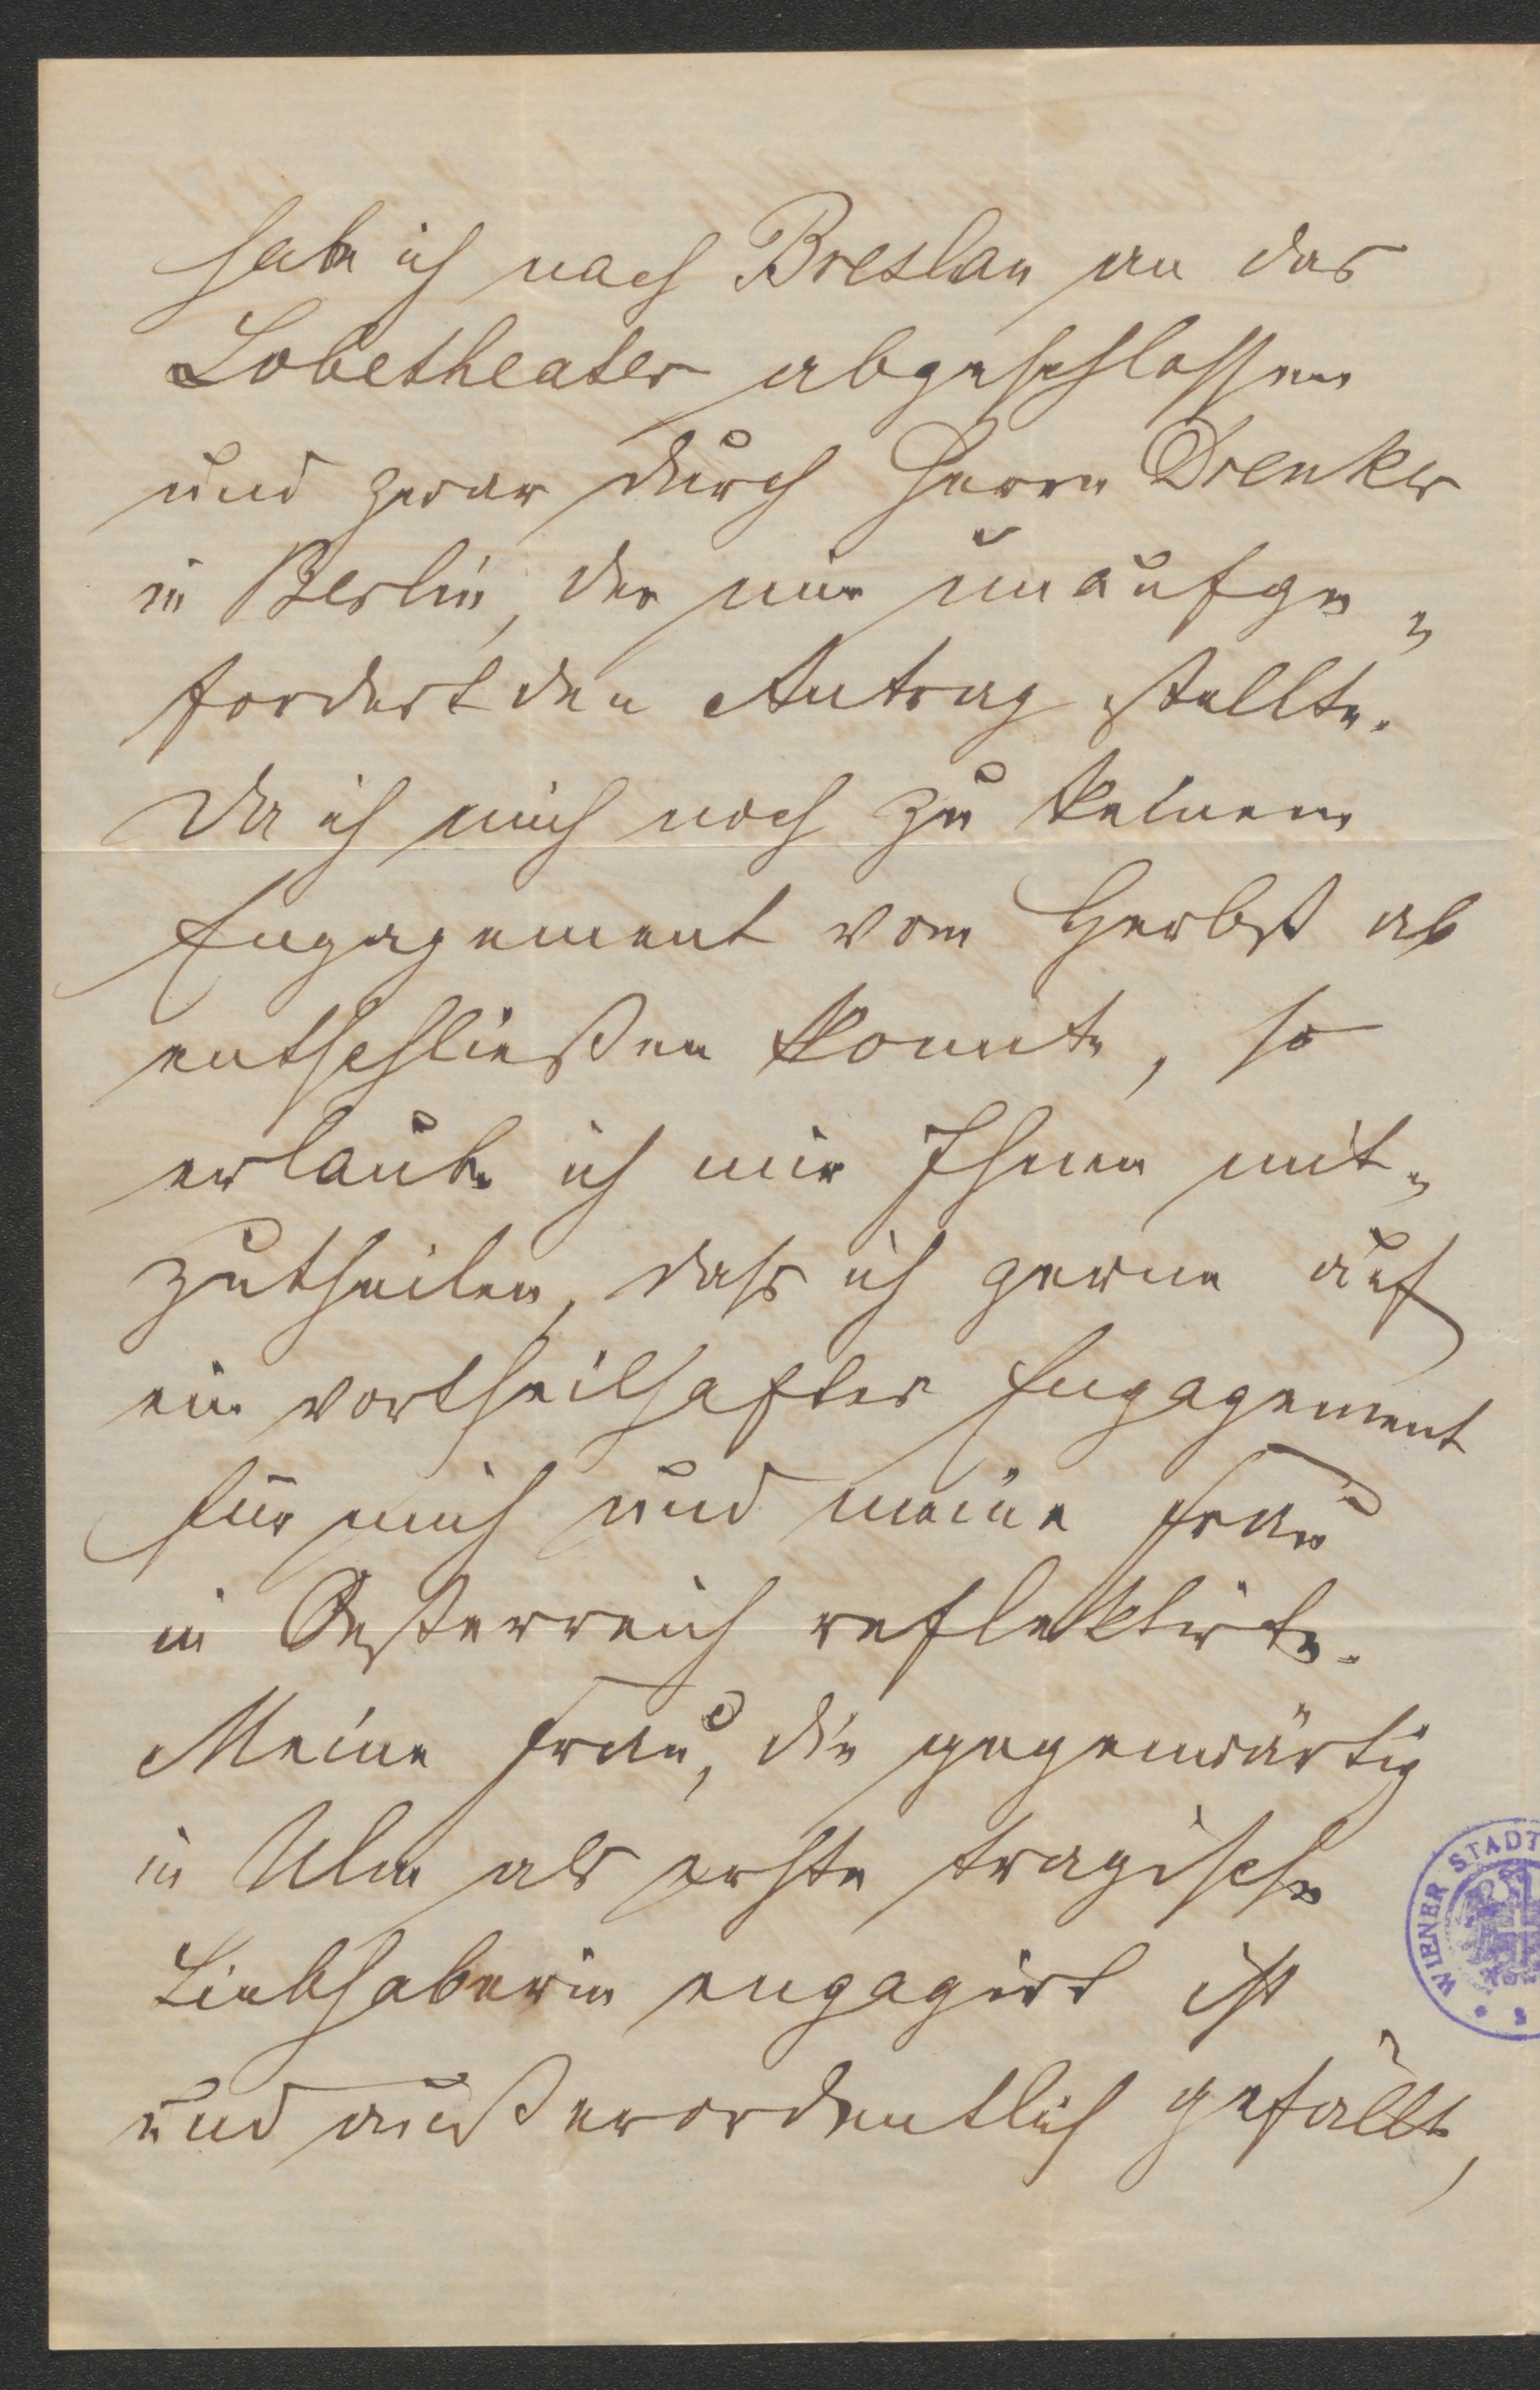 habe ich nach Breslau an das
Lobetheater abgeschlossen
und zwar durch Herrn Drenker
in Berlin, der mir unaufge„
fordert den Antrag stellte.
Da ich mich noch zu keinem
Engagement vom Herbst ab
entschließen konnte, so
erlaube ich mir Ihnen mit„
zutheilen, dass ich gerne auf
ein vortheilhaftes Engagement
für mich und meine Frau
in Oesterreich reflektirte.
Meine Frau, die gegenwärtig
in Ulm als erste tragische
Liebhaberin engagirt ist
und außerordentlich gefällt,
WIENER STADT